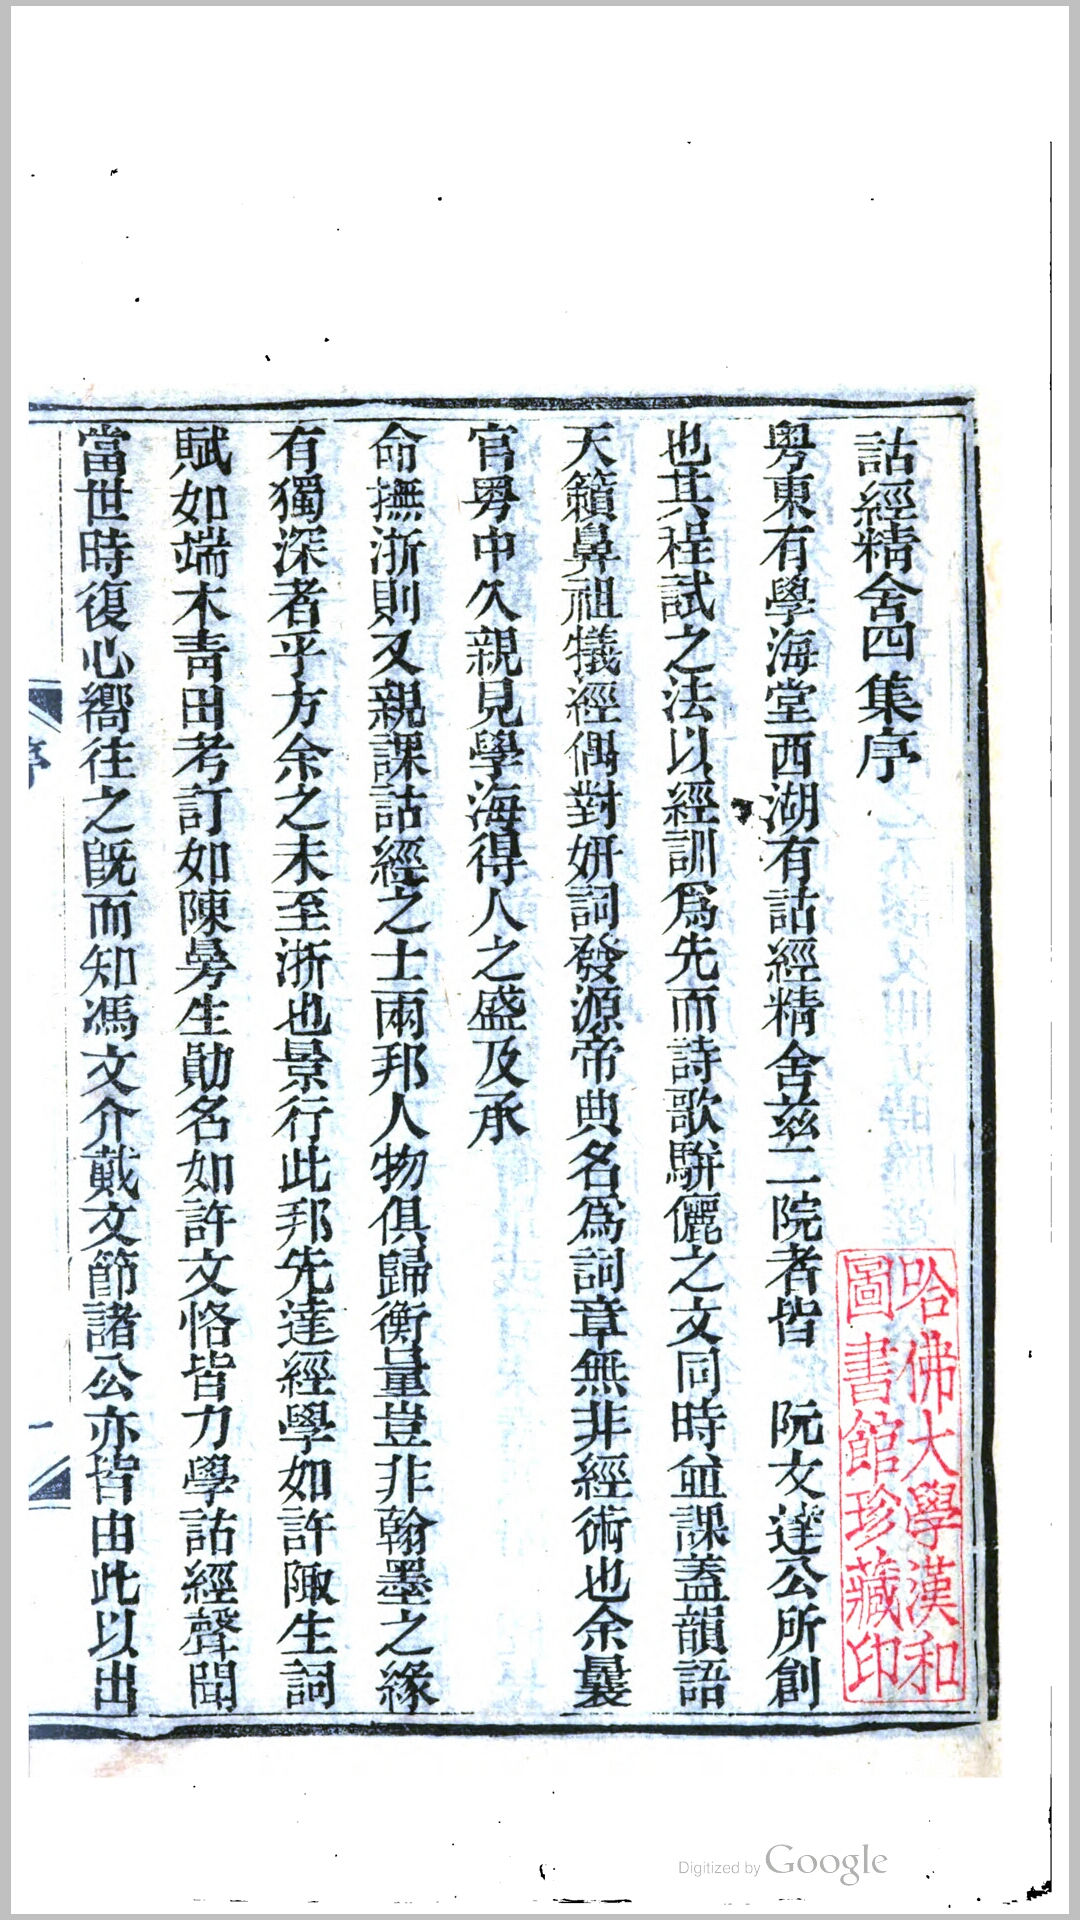 詁經精舍四集序
粵東有學海堂西湖有詁經精舍茲二院者皆　阮文達公所創
也其程試之法以經訓爲先而詩歌駢儷之文同時並課蓋韻語
天籟鼻祖犧經偶對妍詞發源帝典名爲詞章無非經術也余曩
官粵中久親見學海得人之盛及承
命撫浙則又親課詁經之士兩邦人物俱歸衡量豈非翰墨之緣
有獨深者乎方余之未至浙也景行此邦先達經學如許陬生詞
賦如端木青田考訂如陳扅生勛名如許文恪皆力學詁經聲聞
當世時復心嚮往之旣而知馮文介戴文節諸公亦皆由此以出
序
一
哈佛大學漢和
圖書館珍藏印
Digitized by Google